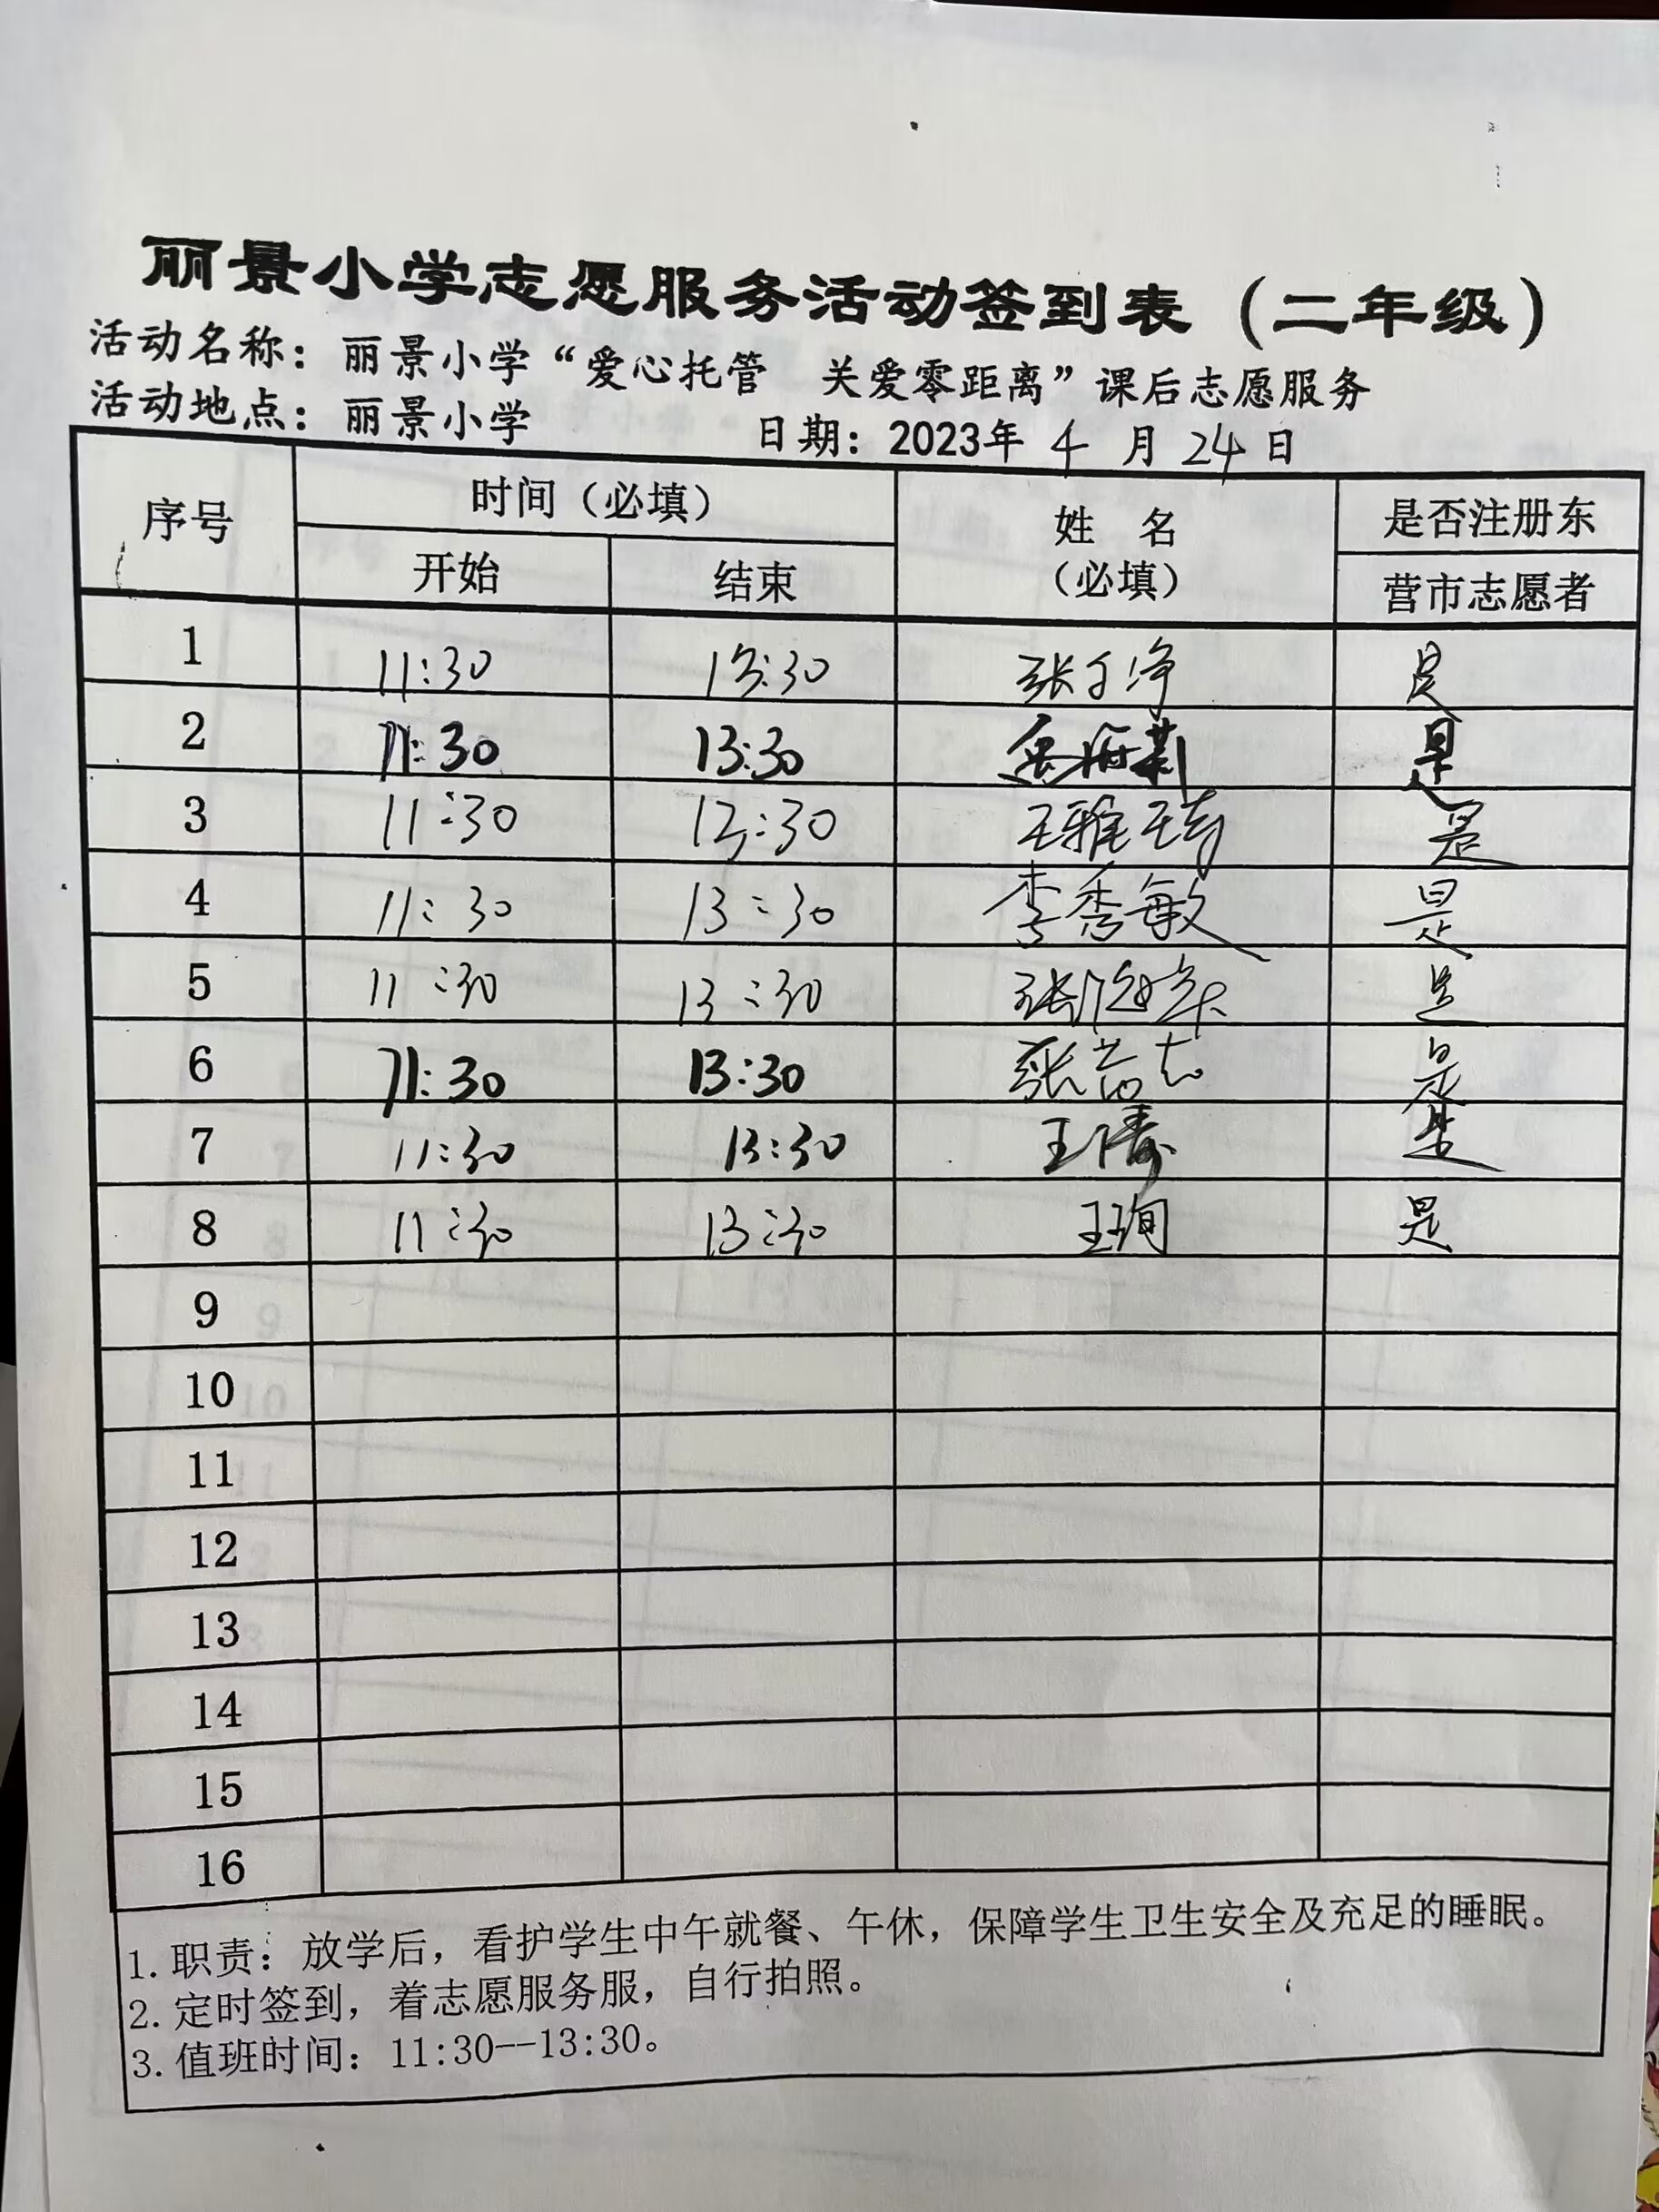 丽景小学志愿服务活动签到表（二年级）
活动名称：丽景小学“爱心托管 关爱零距离”课后志愿服务
活动地点：丽景小学 日期：2023年 4 月 24 日
序号 时间（必填） 姓 名（必填） 是否注册东营市志愿者
开始 结束
1 11:30 13:30 是
2 11:30 13:30 是
3 11:30 13:30 王雅琦 是
4 11:30 13:30 李秀敏 是
5 11:30 13:30 是
6 11:30 13:30 是
7 11:30 13:30 是
8 11:30 13:30 王珣 是
9
10
11
12
13
14
15
16
1. 职责：放学后，看护学生中午就餐、午休，保障学生卫生安全及充足的睡眠。
2. 定时签到，着志愿服务服，自行拍照。
3. 值班时间：11:30--13:30。